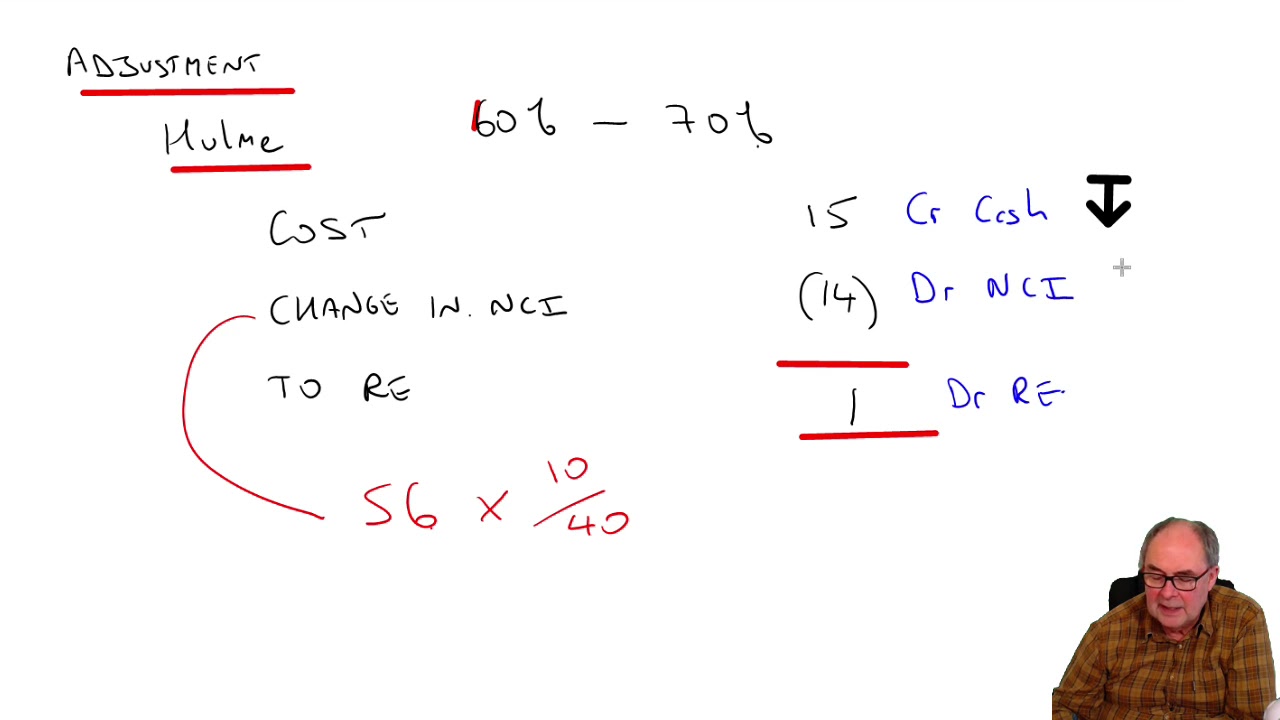 ADJUSTMENT
Hulme 60% - 70%
COST 15 Cr Cash
CHANGE IN. NCI (14) Dr NCI
TO RE 1 Dr RE
56 x 10/40